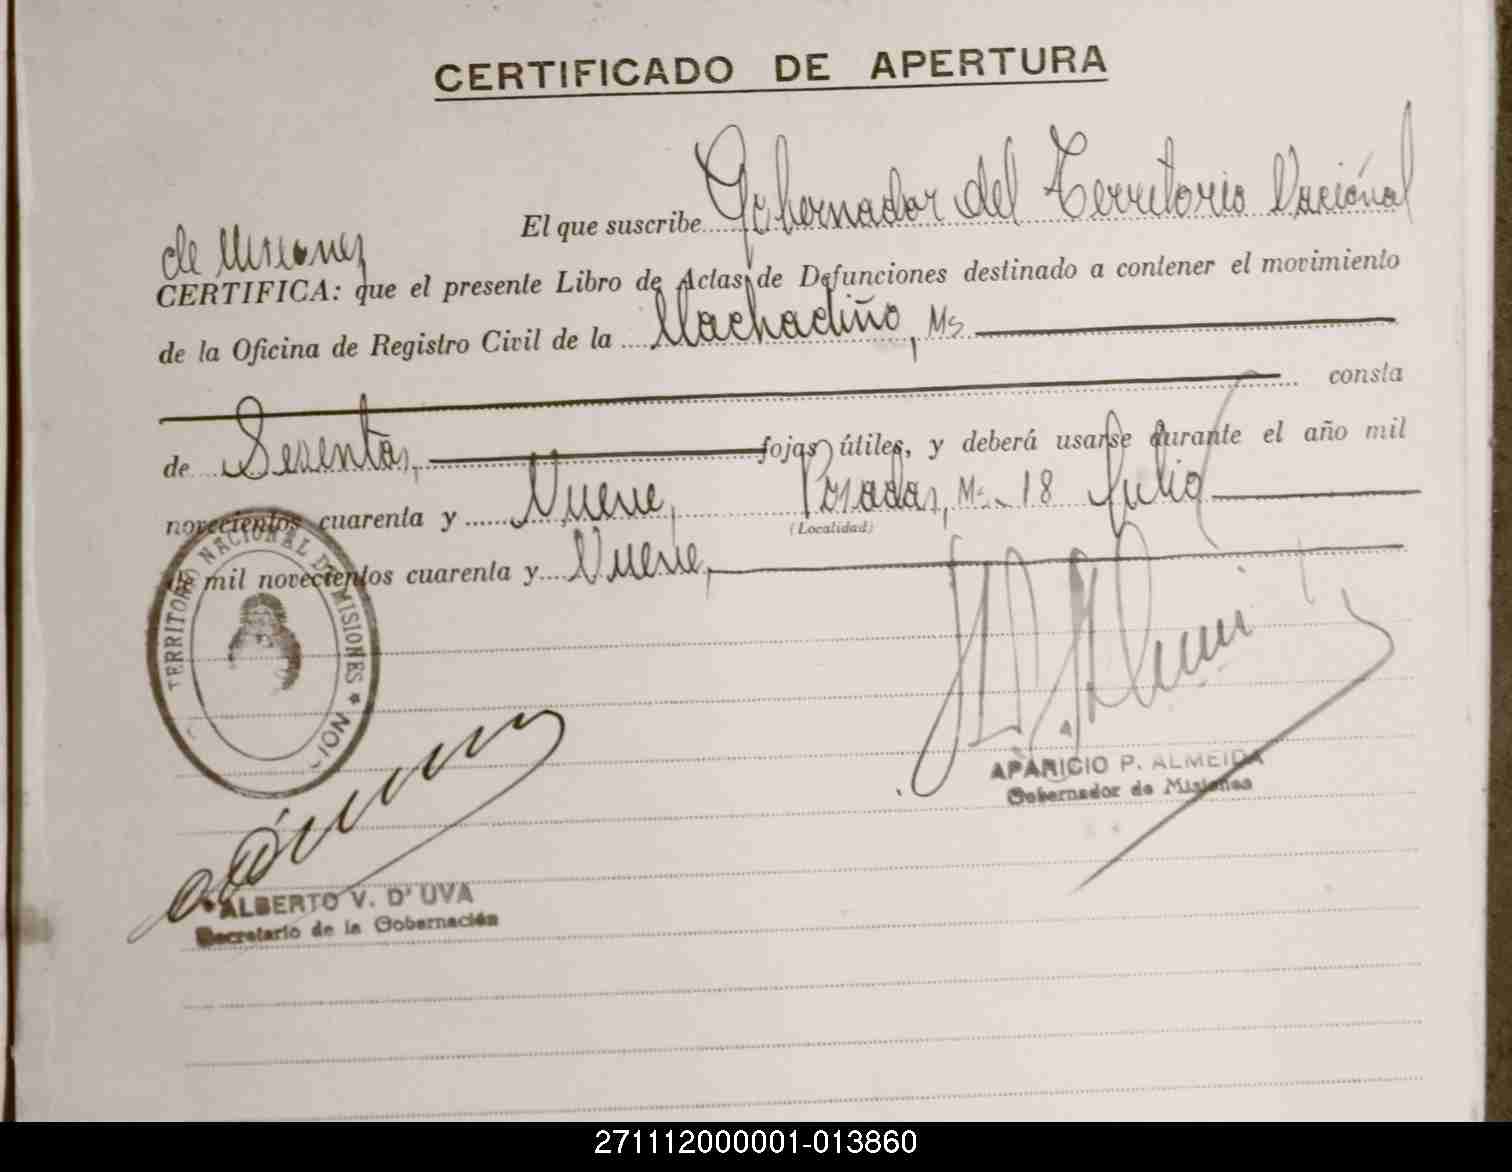 CERTIFICADO DE APERTURA
El que suscribe Gobernador del Territorio Nacional
de Misiones
CERTIFICA: que el presente Libro de Actas de Defunciones destinado a contener el movimiento
de la Oficina de Registro Civil de la Machadiño, Ms.
consta
de Sesenta, fojas útiles, y deberá usarse durante el año mil
novecientos cuarenta y Nueve, Posadas, Ms. 18 Julio
(Localidad)
de mil novecientos cuarenta y Nueve,
TERRITORIO NACIONAL DE MISIONES *
APARICIO P. ALMEIDA
Gobernador de Misiones
ALBERTO V. D'UVA
Secretario de la Gobernación
271112000001-013860